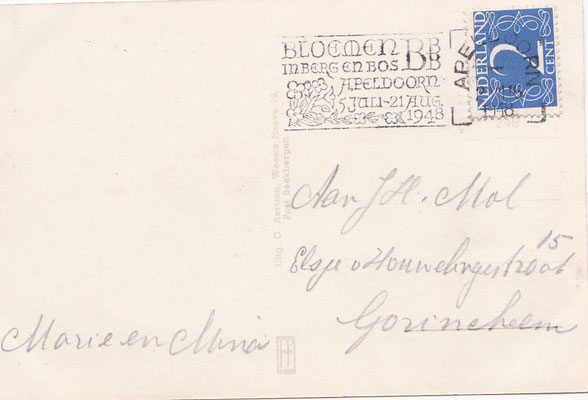 BLOEMEN BB
IN BERG EN BOS
APELDOORN
5 JULI-21 AUG
1948
NEDERLAND
2
CENT
1948
Uitg. C. Aartsen, Woeste Hoeve 19.
Post Beekbergen
Aan J H. Mol
Elsje v Houweningestraat 15
Gorinchem
Marie en Mina